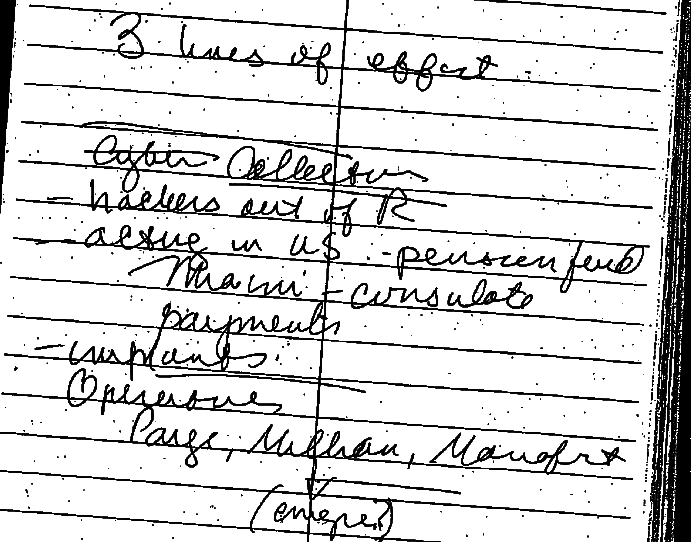 3 lines of effort
Cyber Collection
- hackers out of R
- active in US - pension fund
Miami - consulate
payments
- implants
Operations
Page, Millian, Manafort
(emigre?)